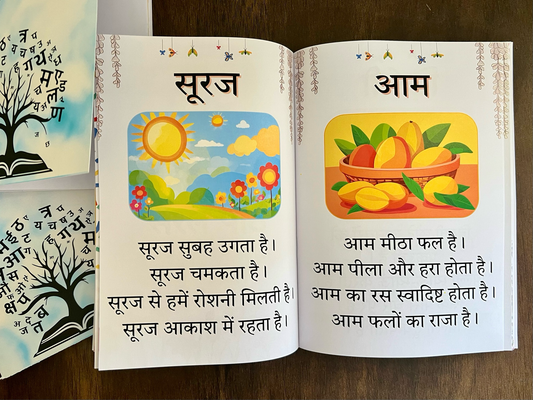 सूरज
सूरज सुबह उगता है।
सूरज चमकता है।
सूरज से हमें रोशनी मिलती है।
सूरज आकाश में रहता है।
आम
आम मीठा फल है।
आम पीला और हरा होता है।
आम का रस स्वादिष्ट होता है।
आम फलों का राजा है।